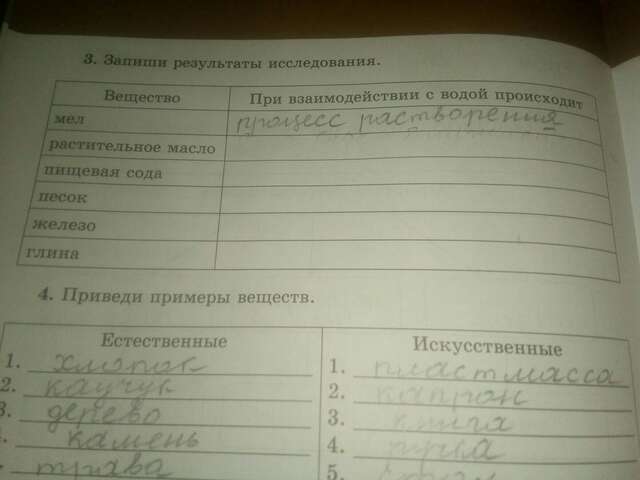 3. Запиши результаты исследования.
Вещество При взаимодействии с водой происходит
мел процесс растворения
растительное масло
пищевая сода
песок
железо
глина
4. Приведи примеры веществ.
Естественные Искусственные
1. хлопок 1. пластмасса
2. каучук 2. капрон
3. дерево 3. книга
камень 4. ручка
трава 5.